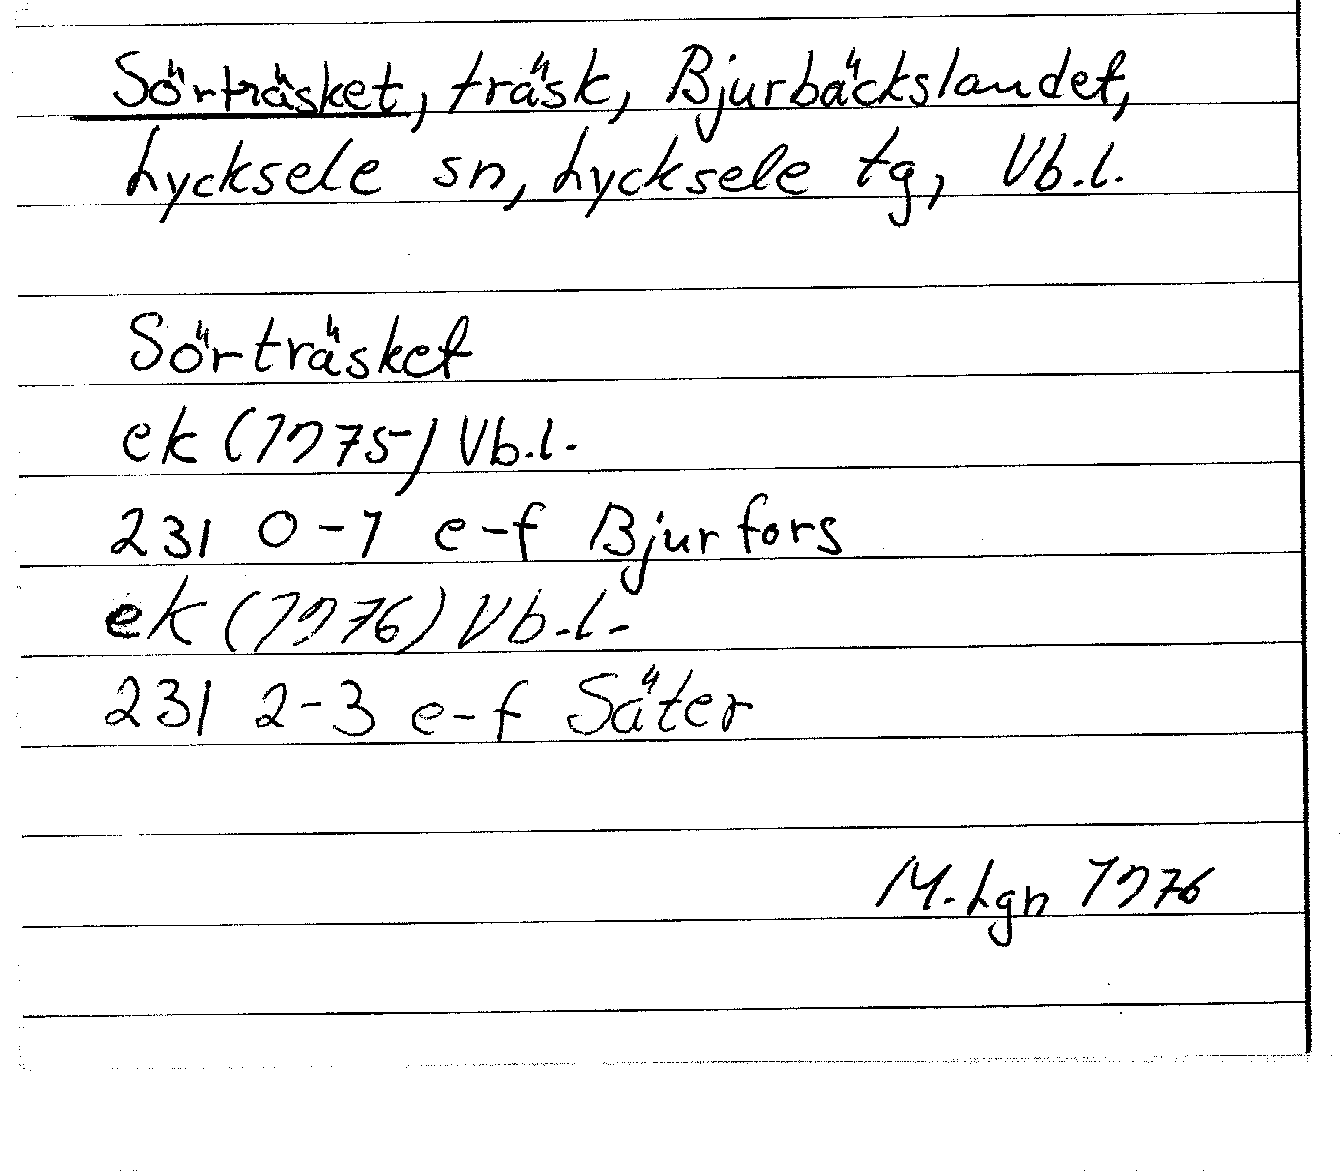 Sörträsket, träsk, Bjurbäckslandet,
Lycksele sn, Lycksele tg, Vb.l.
Sörträsket
ek (1975) Vb.l.
231 0-1 e-f Bjurfors
ek (1976) Vb.l.
231 2-3 e-f Säter
M.Lgn 1976